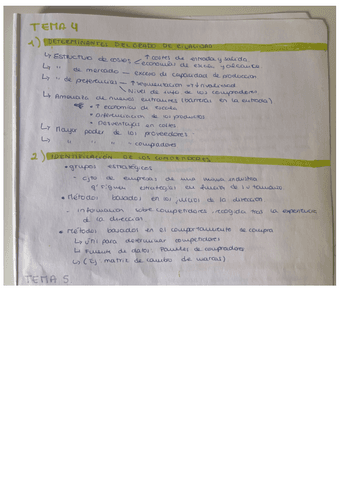 TEMA 4
1) DETERMINANTES DEL GRADO DE RIVALIDAD
↳ Estructura de costes ↑ costes de entrada y salida
economías de escala y alcance
↳ " de mercado - exceso de capacidad de producción
↳ " de preferencias - ↑ segmentación → ↑ rivalidad
↳ Amenaza de nuevos entrantes (barreras en la entrada)
• ↑ economías de escala
• diferenciación de los productos
• Desventajas en costes
↳ Mayor poder de los proveedores
↳ " " - compradores
2) IDENTIFICACIÓN DE LOS COMPETIDORES
• grupos estratégicos
- cjto de empresas de una misma industria
q siguen estrategias en función de
• Métodos basados en los juicios de la dirección
- información sobre competidores recogida tras la experiencia
d la dirección
• Métodos basados en el comportamiento de compra
↳ para determinar competidores
↳ Fuentes de datos: Paneles de compradores
↳ (Ej matriz de cambio de marcas)
TEMA 5